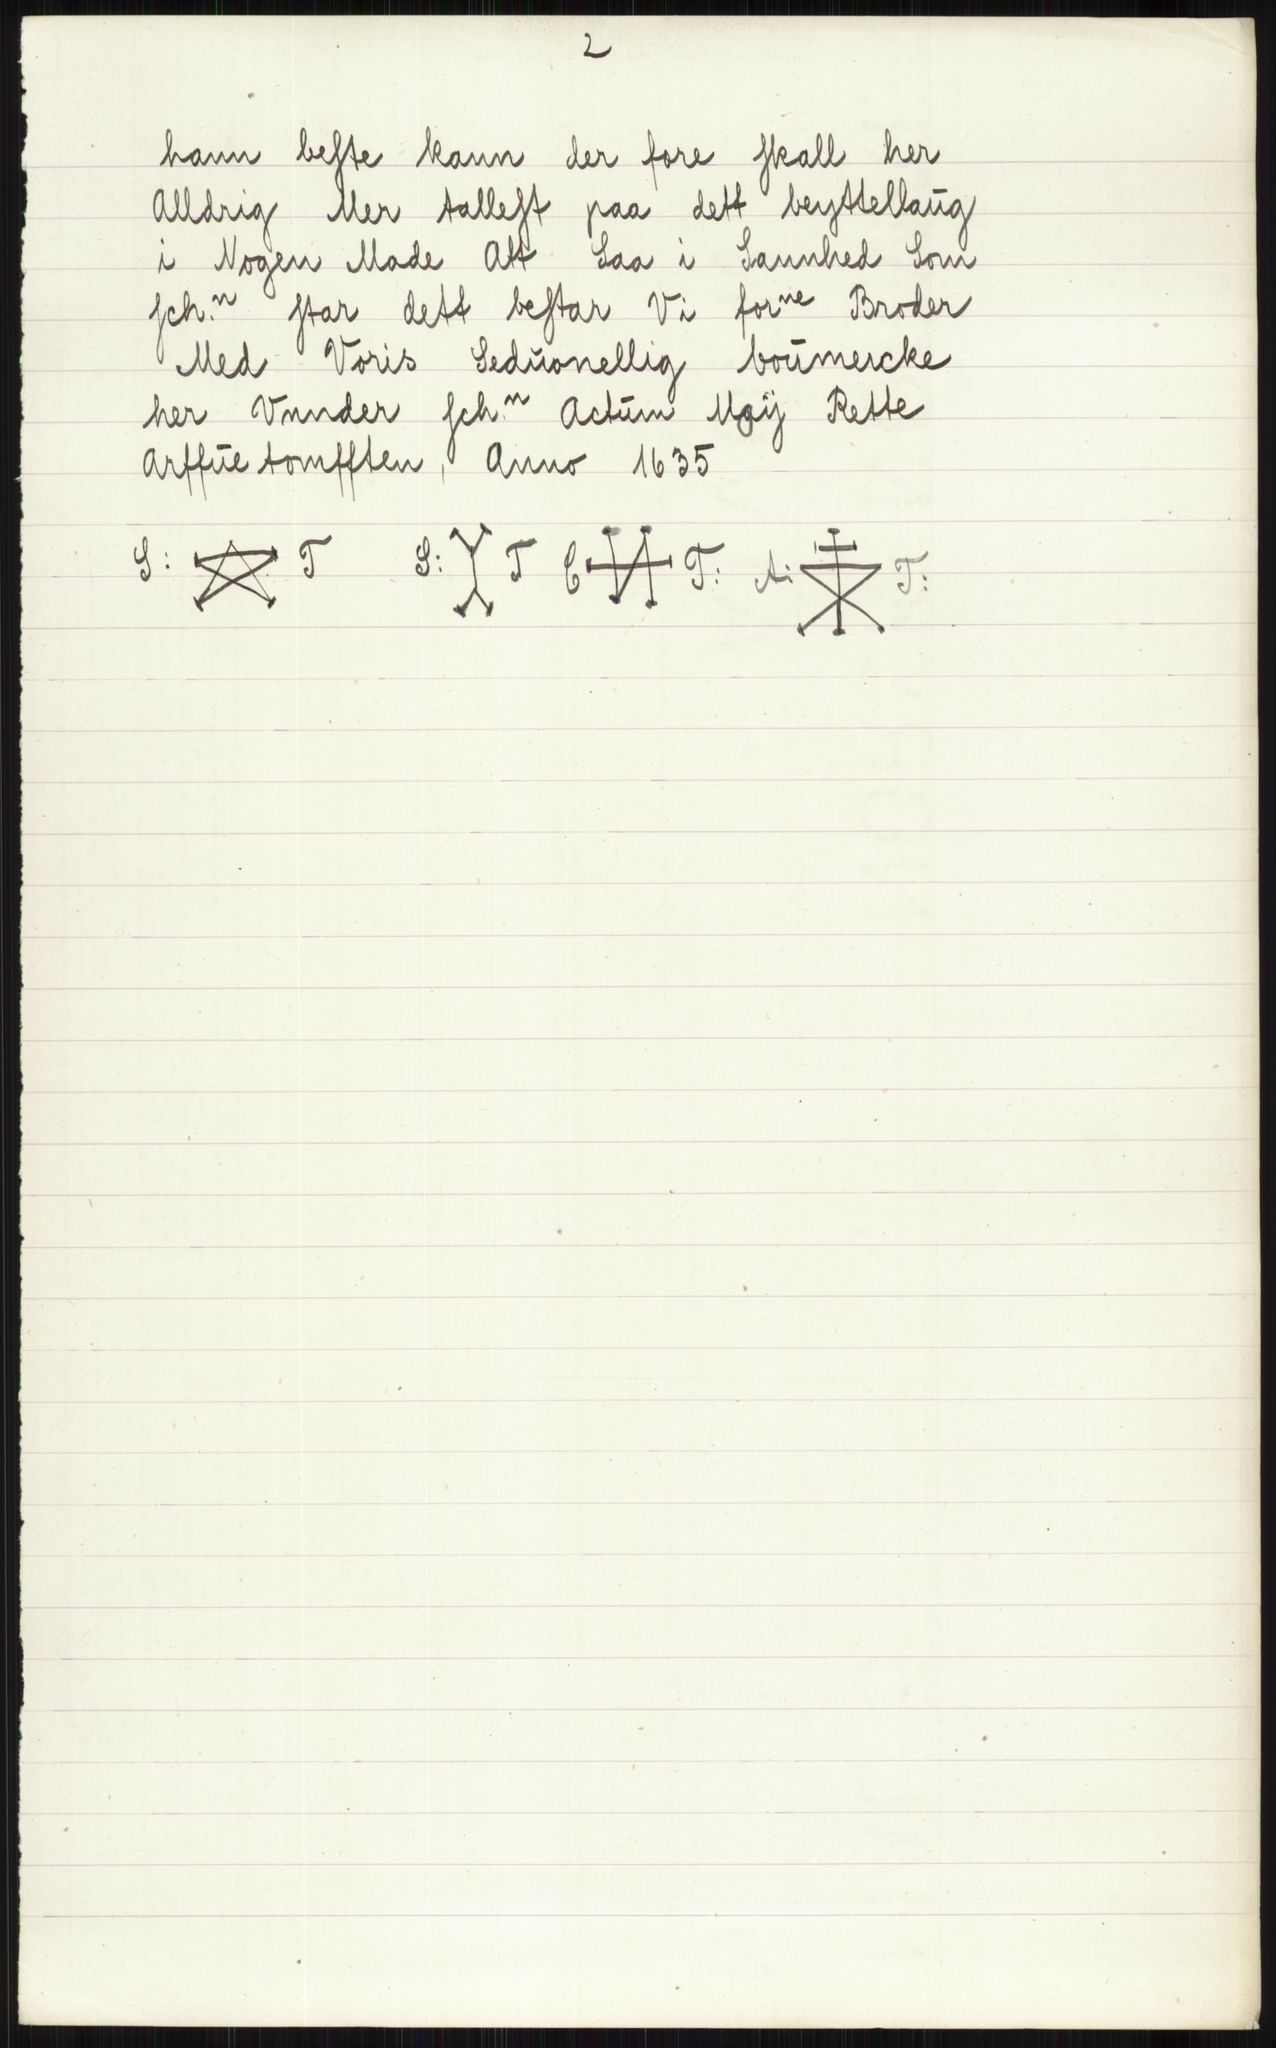 2
hann beſte kann der fore ſkall her
Alldrig Mer talleſt paa dett beyttellaũg
i Nogen Made Att Saa i Sannhed Som
ſch:ⁿ ſtar dett beſtar Vi forⁿᵉ Broder
Med Voris Sedũonellig boũmercke
her Vnnder ſch:ⁿ Actũm Moÿ Rette
Arffũetomfften, Anno 1635
S: T S: T C T: A: T: